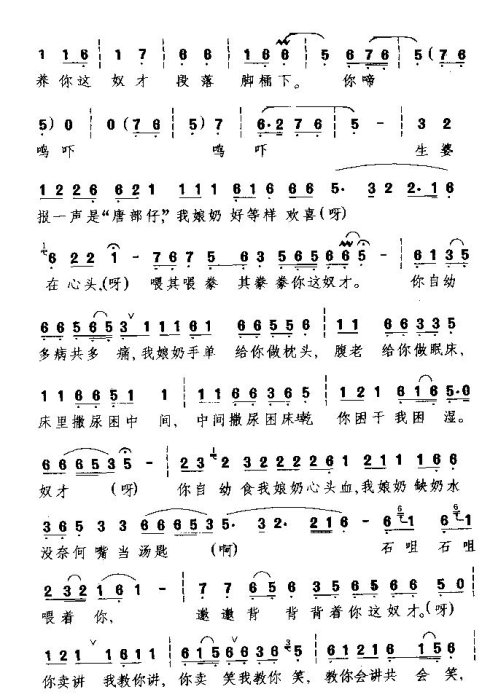 1 1 1 6 | 1 7 | 6 6 | 1 6 6 | 5 6 7 6 | 5 (7 6
养你这 奴才 段落 脚桶下。 你啼
5) 0 | 0 (7 6 | 5) 7 | 6·2 7 6 | 5 - | 3 2
鸣吓 鸣吓 生婆
1 2 2 6 6 2 1 | 1 1 1 6 1 6 6 6 | 5· 3 2 2·1 6
报一声是“唐部仔,”我娘奶 好等样 欢喜(呀)
6 2 2 1 - | 7 6 7 5 6 3 5 6 5 6 6 5 - | 6 1 3 5
在心头,(呀) 喂其喂拳 其拳拳你这奴才。 你自幼
6 6 5 6 5 3 1 1 1 6 1 | 6 6 5 6 5 6 | 1 1 6 6 3 3 5
多病共多 痛,我娘奶手单 给你做枕头, 腹老 给你做眠床,
1 1 6 6 5 1 1 1 | 1 1 6 6 3 6 5 | 6 1 6 6 2 5·0
床里撒尿困中 间, 中间撒尿困床乾 你困干我困 湿。
6 6 6 5 3 5 - | 2 3 2 2 3 2 2 2 2 6 1 | 2 1 1 1 6 6
奴才 (呀) 你自幼 食我娘奶心头血,我娘奶 缺奶水
3 6 5 3 3 6 6 6 5 3 5· 3 2· 2 1 6 - | 6 1 6 1
没奈何嘴当汤匙 (啊) 石咀 石咀
2 3 2 1 6 1 - | 7 7 6 5 6 | 3 5 6 5 6 6 5 0
喂着你, 邀邀背 背背着你这奴才。(呀)
1 2 1 1 1 6 1 1 | 6 1 5 6 6 3 6 6 5 | 6 1 2 1 6 1 5 6
你卖讲 我教你讲, 你卖 笑我教你 笑, 教你会讲共 会 笑,